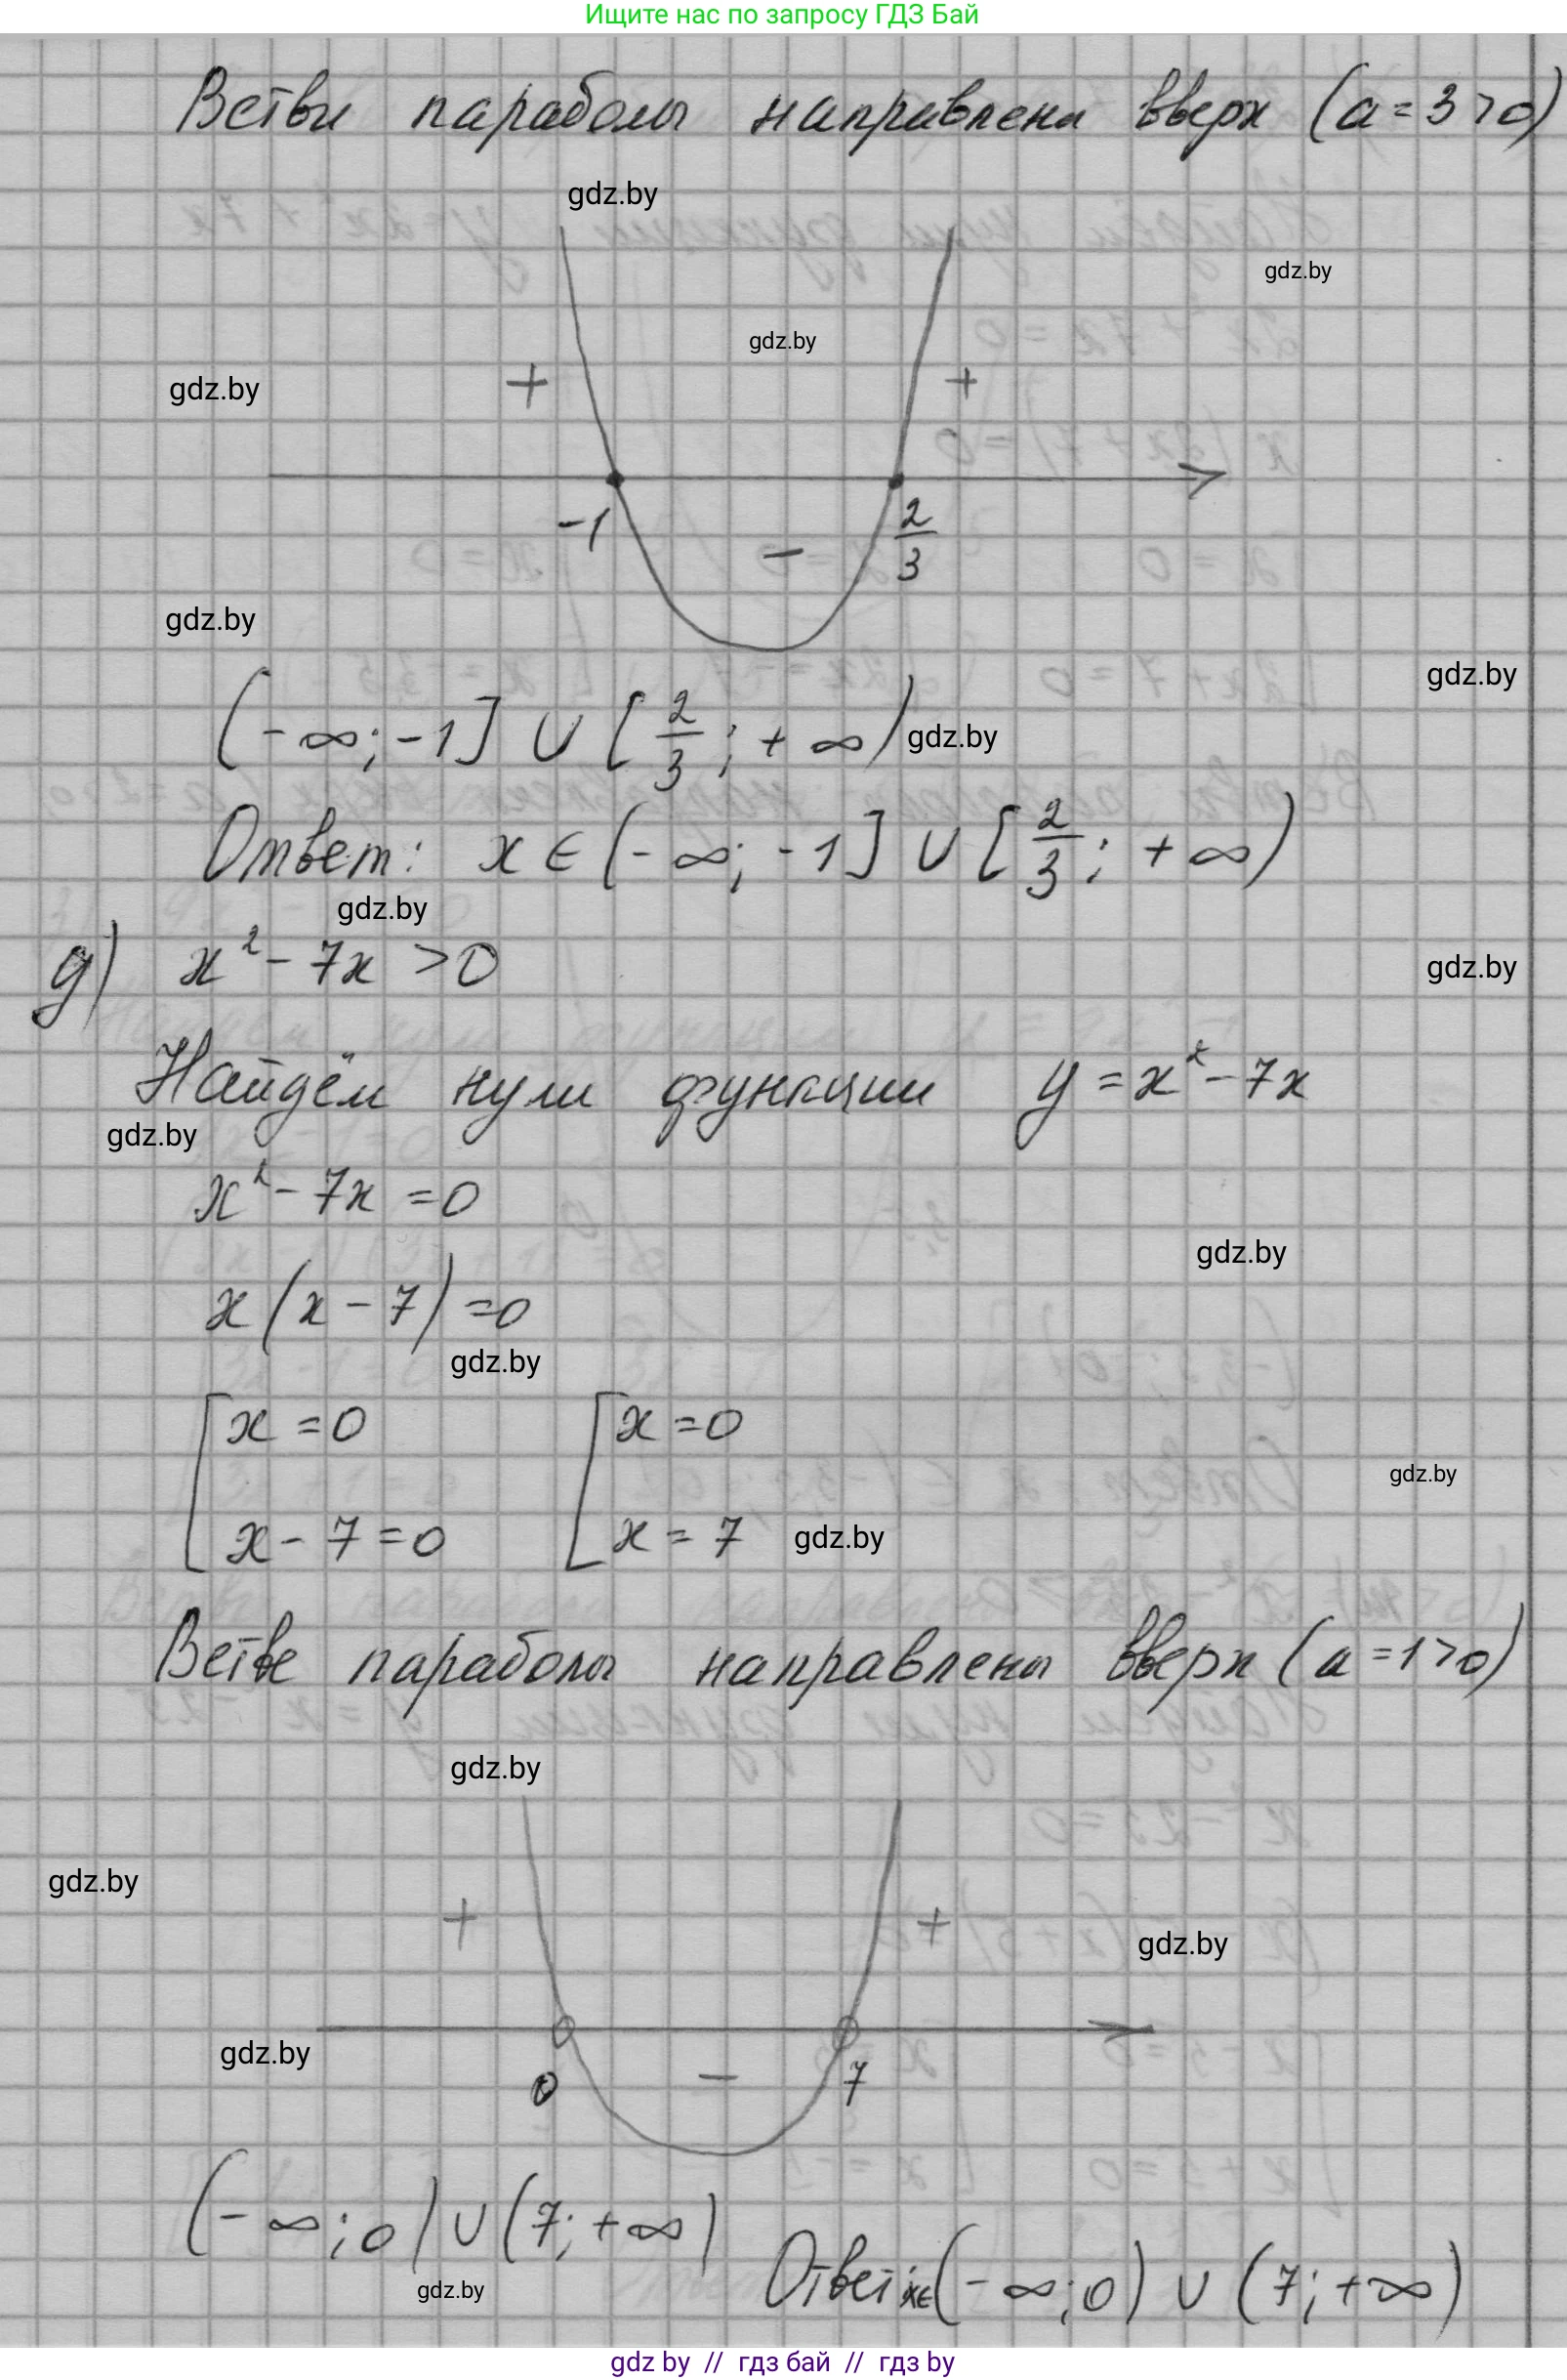 Ищите нас по запросу ГДЗ Бай
Ветви параболы направлены вверх (a = 3 > 0)
gdz.by
gdz.by
gdz.by
gdz.by
+ +
-1 - 2/3
gdz.by
gdz.by
(-∞; -1] ∪ [2/3; +∞)
gdz.by
Ответ: x ∈ (-∞; -1] ∪ [2/3; +∞)
gdz.by
д) x² - 7x > 0
gdz.by
Найдём нули функции y = x² - 7x
gdz.by
x² - 7x = 0
gdz.by
x(x - 7) = 0
gdz.by
[x = 0 [x = 0
gdz.by
x - 7 = 0 x = 7
gdz.by
Ветве параболы направлены вверх (a = 1 > 0)
gdz.by
gdz.by
+ +
gdz.by
gdz.by
0 - 7
(-∞; 0) ∪ (7; +∞)
Ответ: x∈(-∞; 0) ∪ (7; +∞)
gdz.by
gdz by // гдз бай // гдз by